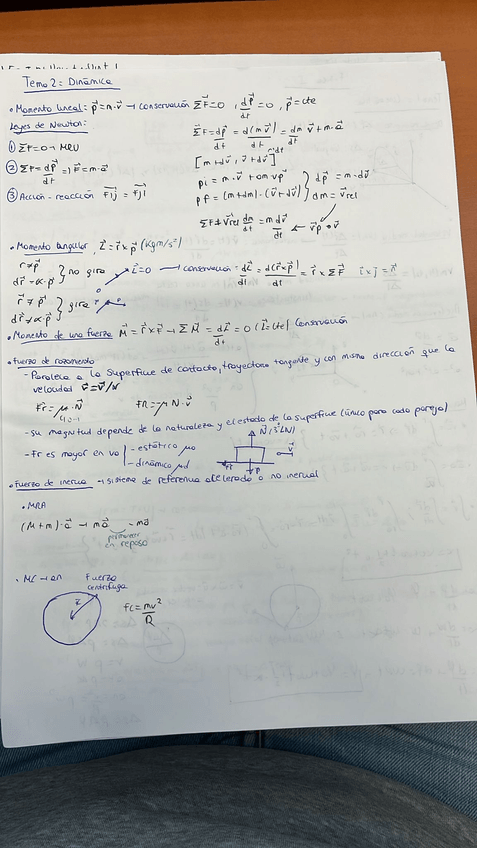 Tema 2: Dinámica
• Momento lineal: p⃗=m·v⃗ → conservación ΣF⃗=0, dp⃗/dt=0, p⃗=cte
Leyes de Newton:
① ΣF=0 → MRU
② ΣF=dp⃗/dt ⇒ F⃗=m·a⃗
③ Acción-reacción F⃗ij = F⃗ji
ΣF=dp⃗/dt = d(mv⃗)/dt = dm/dt v⃗+m·a⃗
[m+dv⃗, v⃗+dv⃗]
pi = m·v⃗ + dm vp⃗
pf = (m+dm)·(v⃗+dv⃗)
dp⃗ = m·dv⃗
dm = v⃗rel
ΣF+v⃗rel dm/dt = m dv⃗/dt ← v⃗p - v⃗
• Momento angular, L⃗ = r⃗ × p⃗ (kgm/s²)
r⃗ ∝ p⃗
dr⃗ = α·p⃗ } no gira
L⃗=0 → conservación = dL⃗/dt = d(r⃗×p⃗)/dt = r⃗ × ΣF⃗ i⃗ × j⃗ = k⃗
r⃗ ∝̸ p⃗
dr⃗ ≠ α·p⃗ } gira
• Momento de una fuerza M⃗ = r⃗×F⃗ → ΣM⃗ = dL⃗/dt = 0 (L⃗=cte) Conservación
• Fuerza de rozamiento
- Paralela a la superficie de contacto, trayectoria tangente y con misma dirección que la
velocidad v̂ = v⃗/v
Fr = μ·N⃗ FR = μ N·v⃗
- su magnitud depende de la naturaleza y el estado de la superficie (único para cada pareja)
- Fr es mayor en
- estático μo
- dinámica μd
N⃗ (3ªLN)
v⃗
Fr
P
• Fuerza de inercia → sistema de referencia acelerado o no inercial
• MRA
(M+m)·a⃗ → ma⃗ -ma
permanecer
en reposo
• MC → an Fuerza
centrífuga
fc = mv²/R